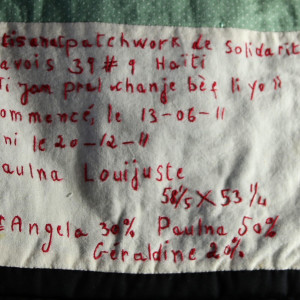 tisanat patchwork de Solidarit
avois 39 # 9 Haiti
Ti jan pral chanje bèf li yo ii
ommencé, le 13-06-11
ni le 20-12-11
aulna Louijuste
58 1/5 X 53 1/4
Angela 30% Paulna 50%
Géraldine 20%